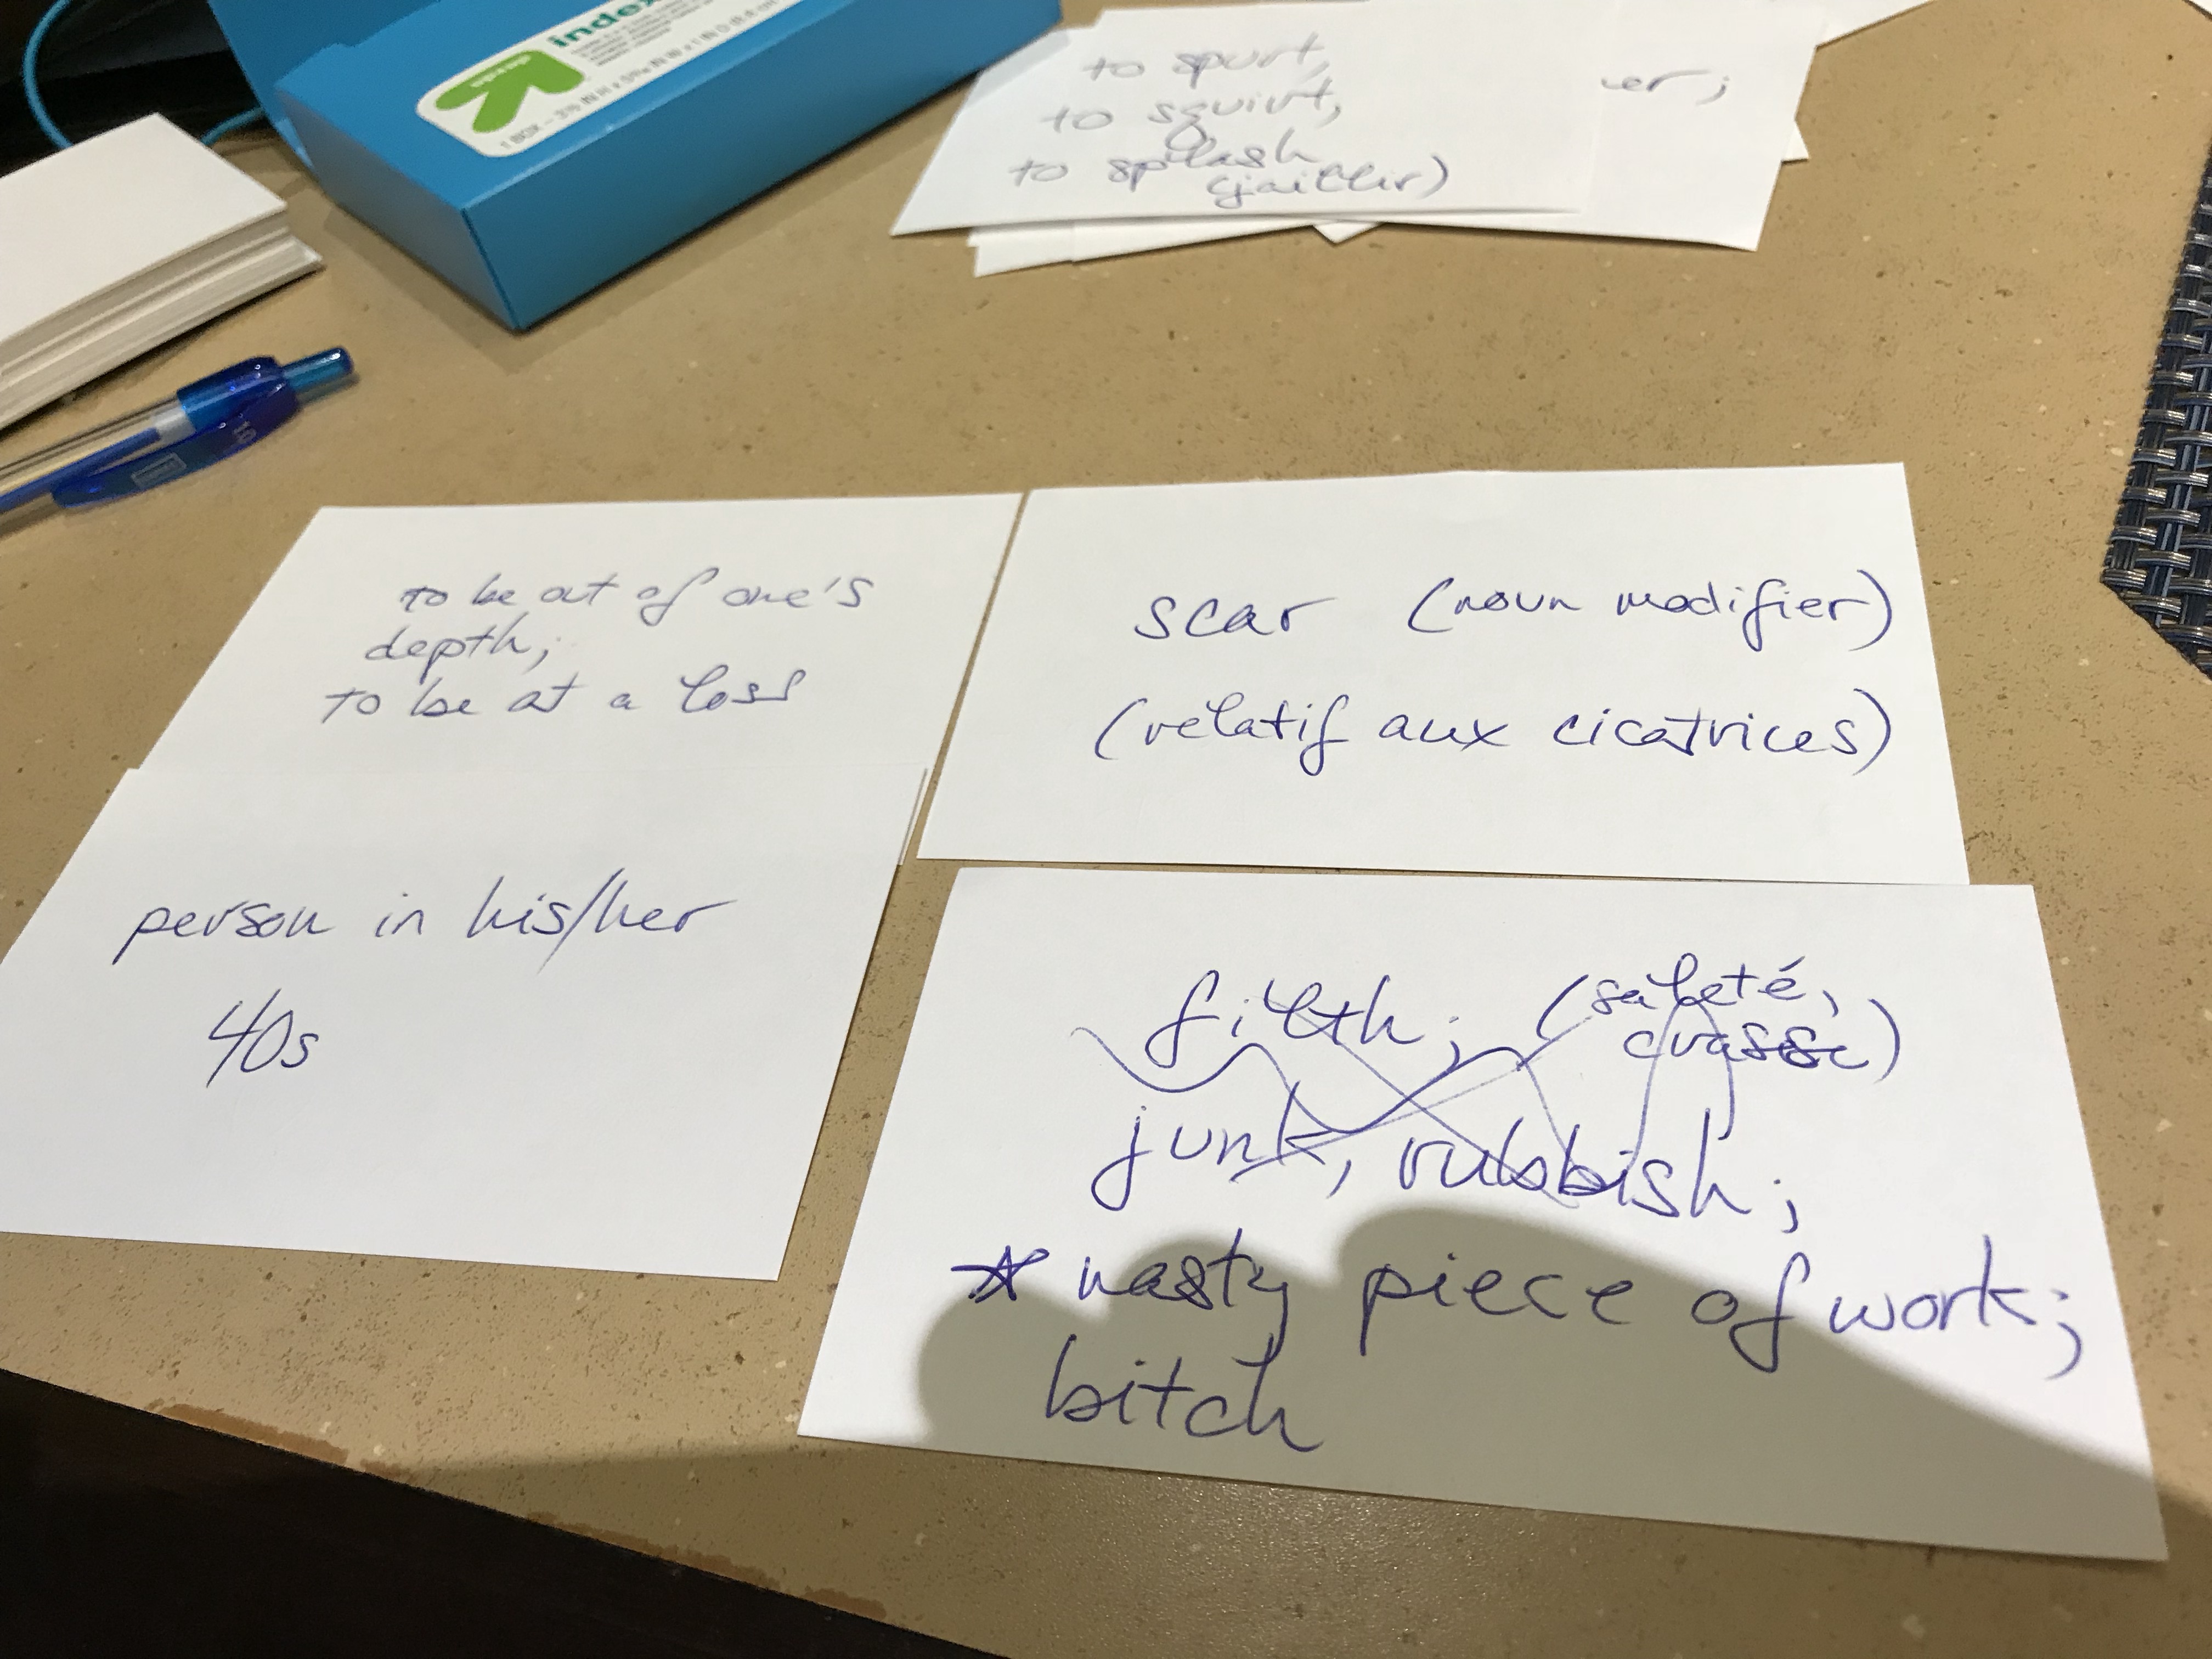 index
1 BOX – 3
to spurt,
to squirt,
to splash
(jaillir)
er;
1.0
to be out of one's
depth;
to be at a loss
scar (noun modifier)
(relatif aux cicatrices)
person in his/her
40s
filth; (saleté,
crasse)
junk, rubbish;
* nasty piece of work;
bitch